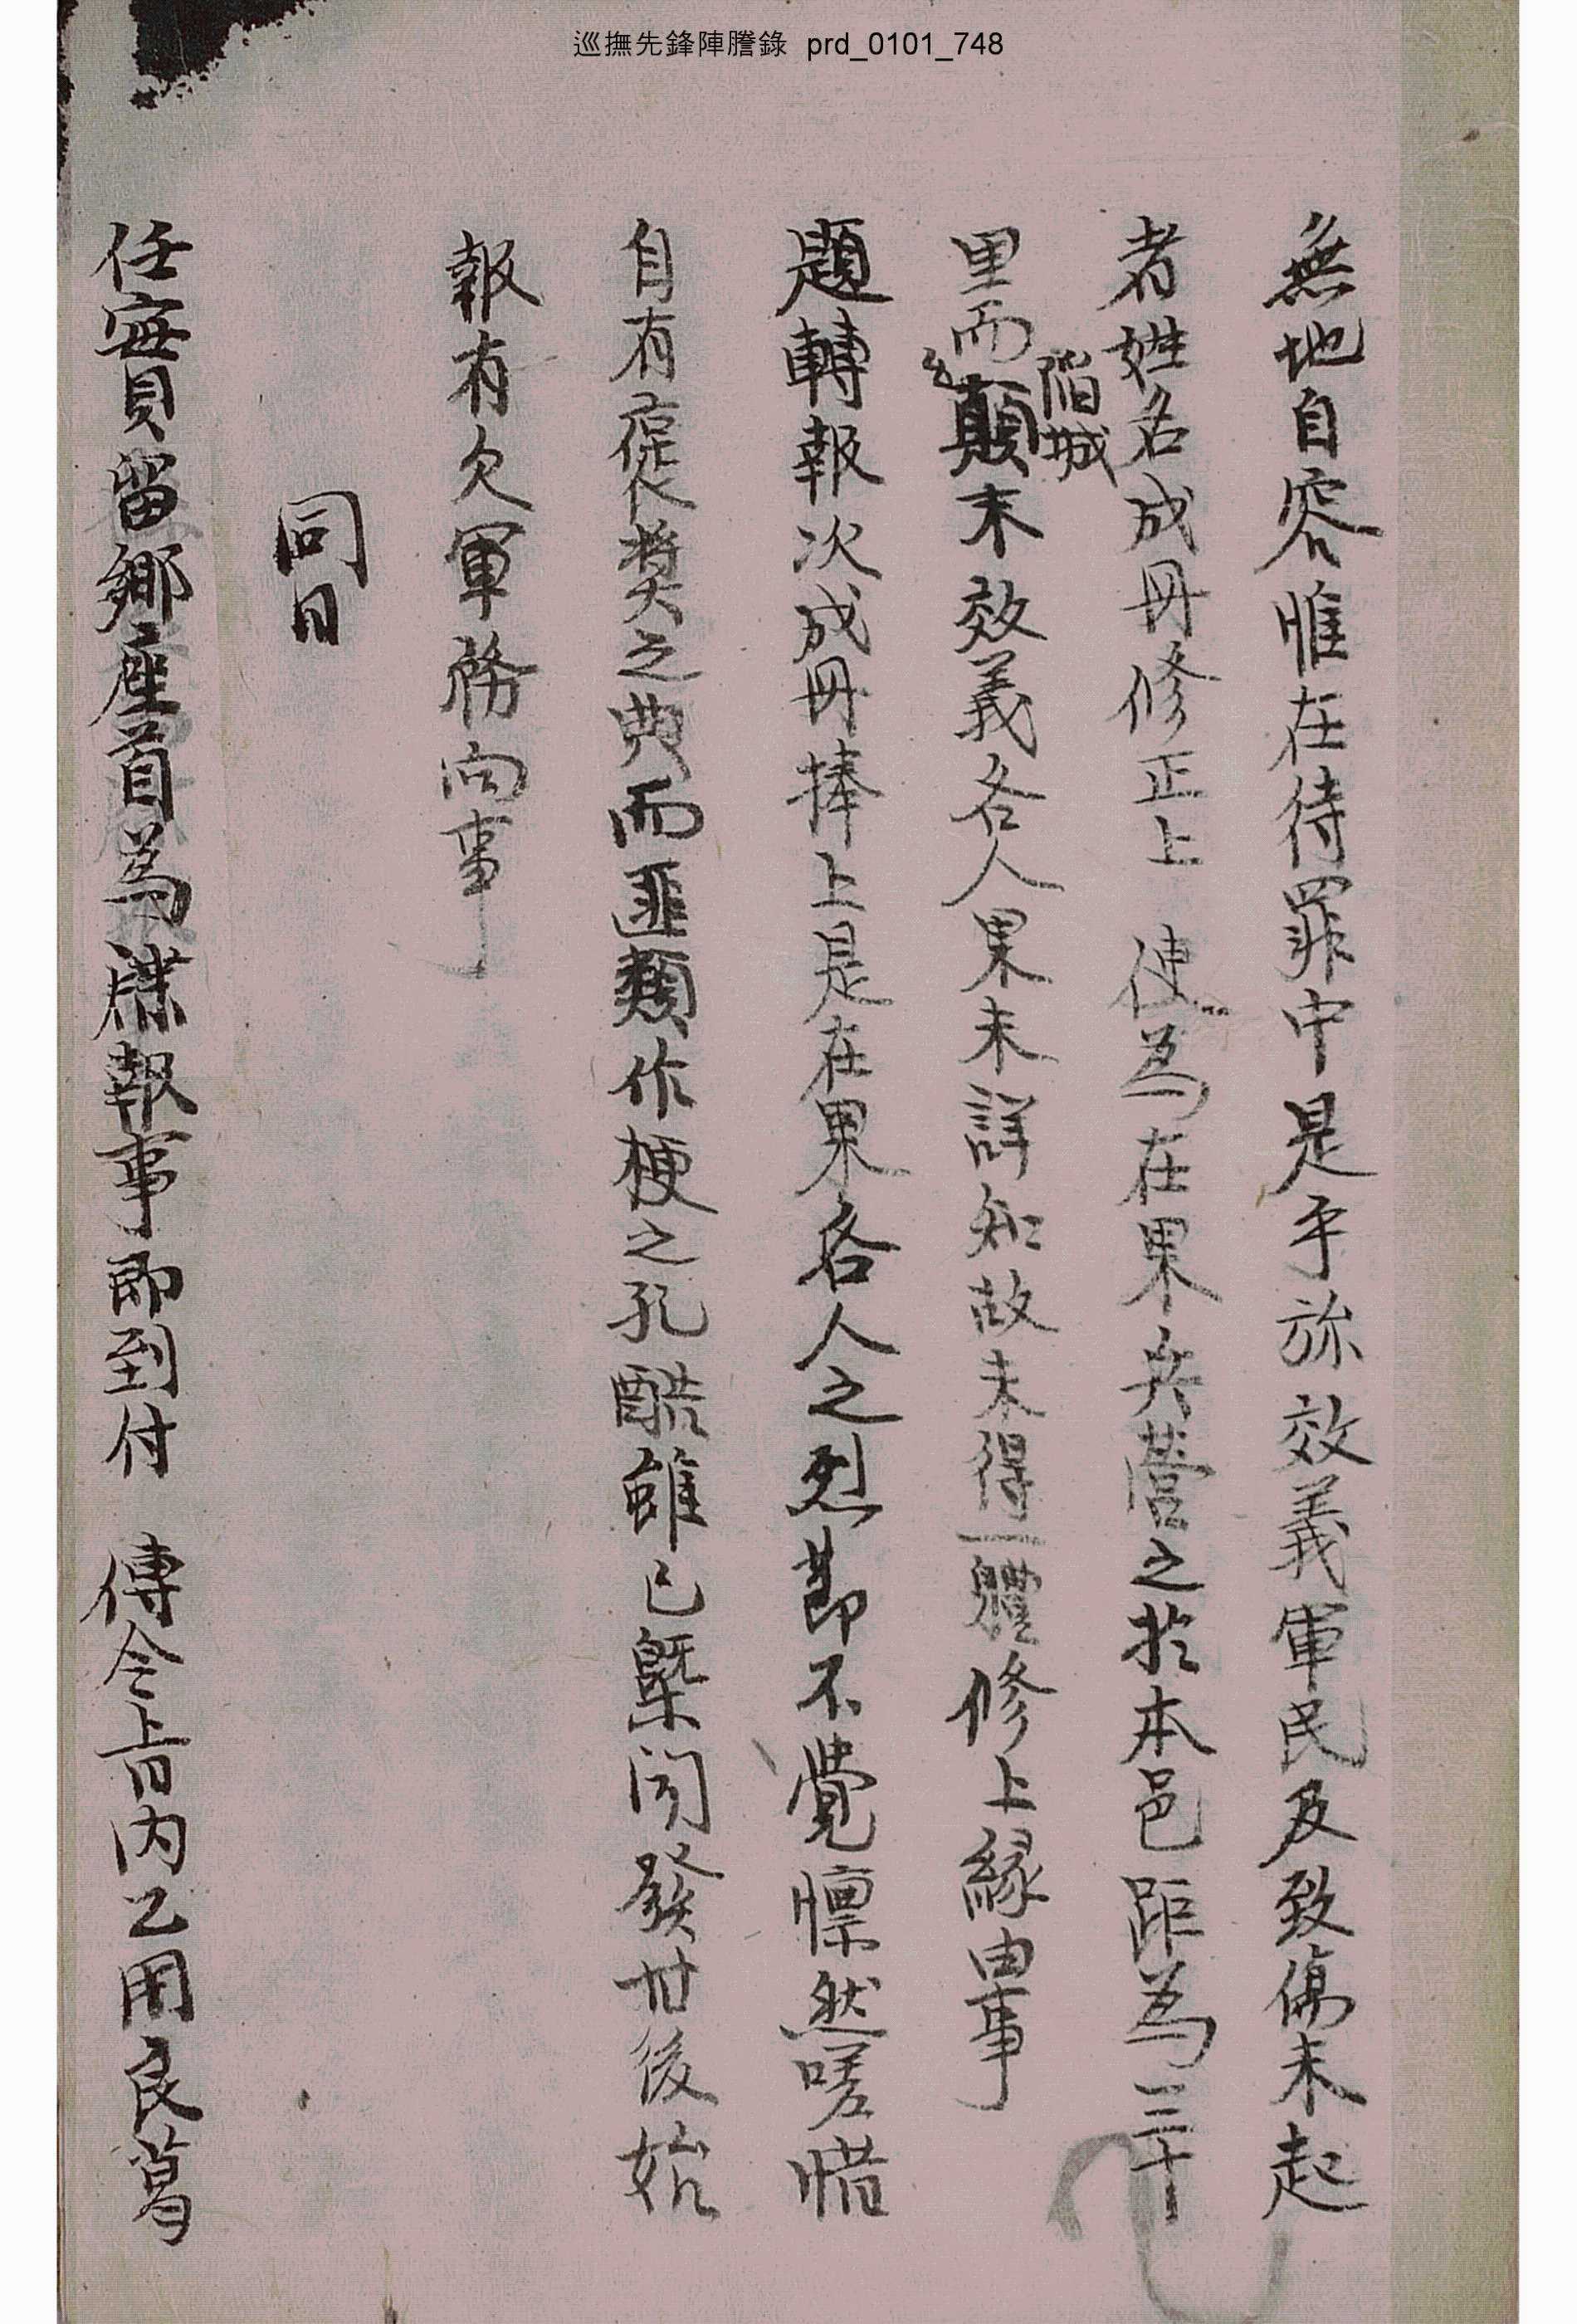 巡撫先鋒陣謄錄 prd_0101_748
無地自容惟在待罪中是乎旀效義軍民及致傷未起
者姓名成冊修正上 使爲在果兵營之於本邑距爲三十
里而陷城顚末效義各人果未詳知故未得一軆修上緣由事
題轉報次成冊捧上是在果各人之烈節不覺懍然嗟惜
自有褒奬之典而匪類作梗之孔酷雖已槩聞發廿後始
報有欠軍務向事
同日
任實留鄕座首爲牒報事卽到付 傳令旨內乙用良